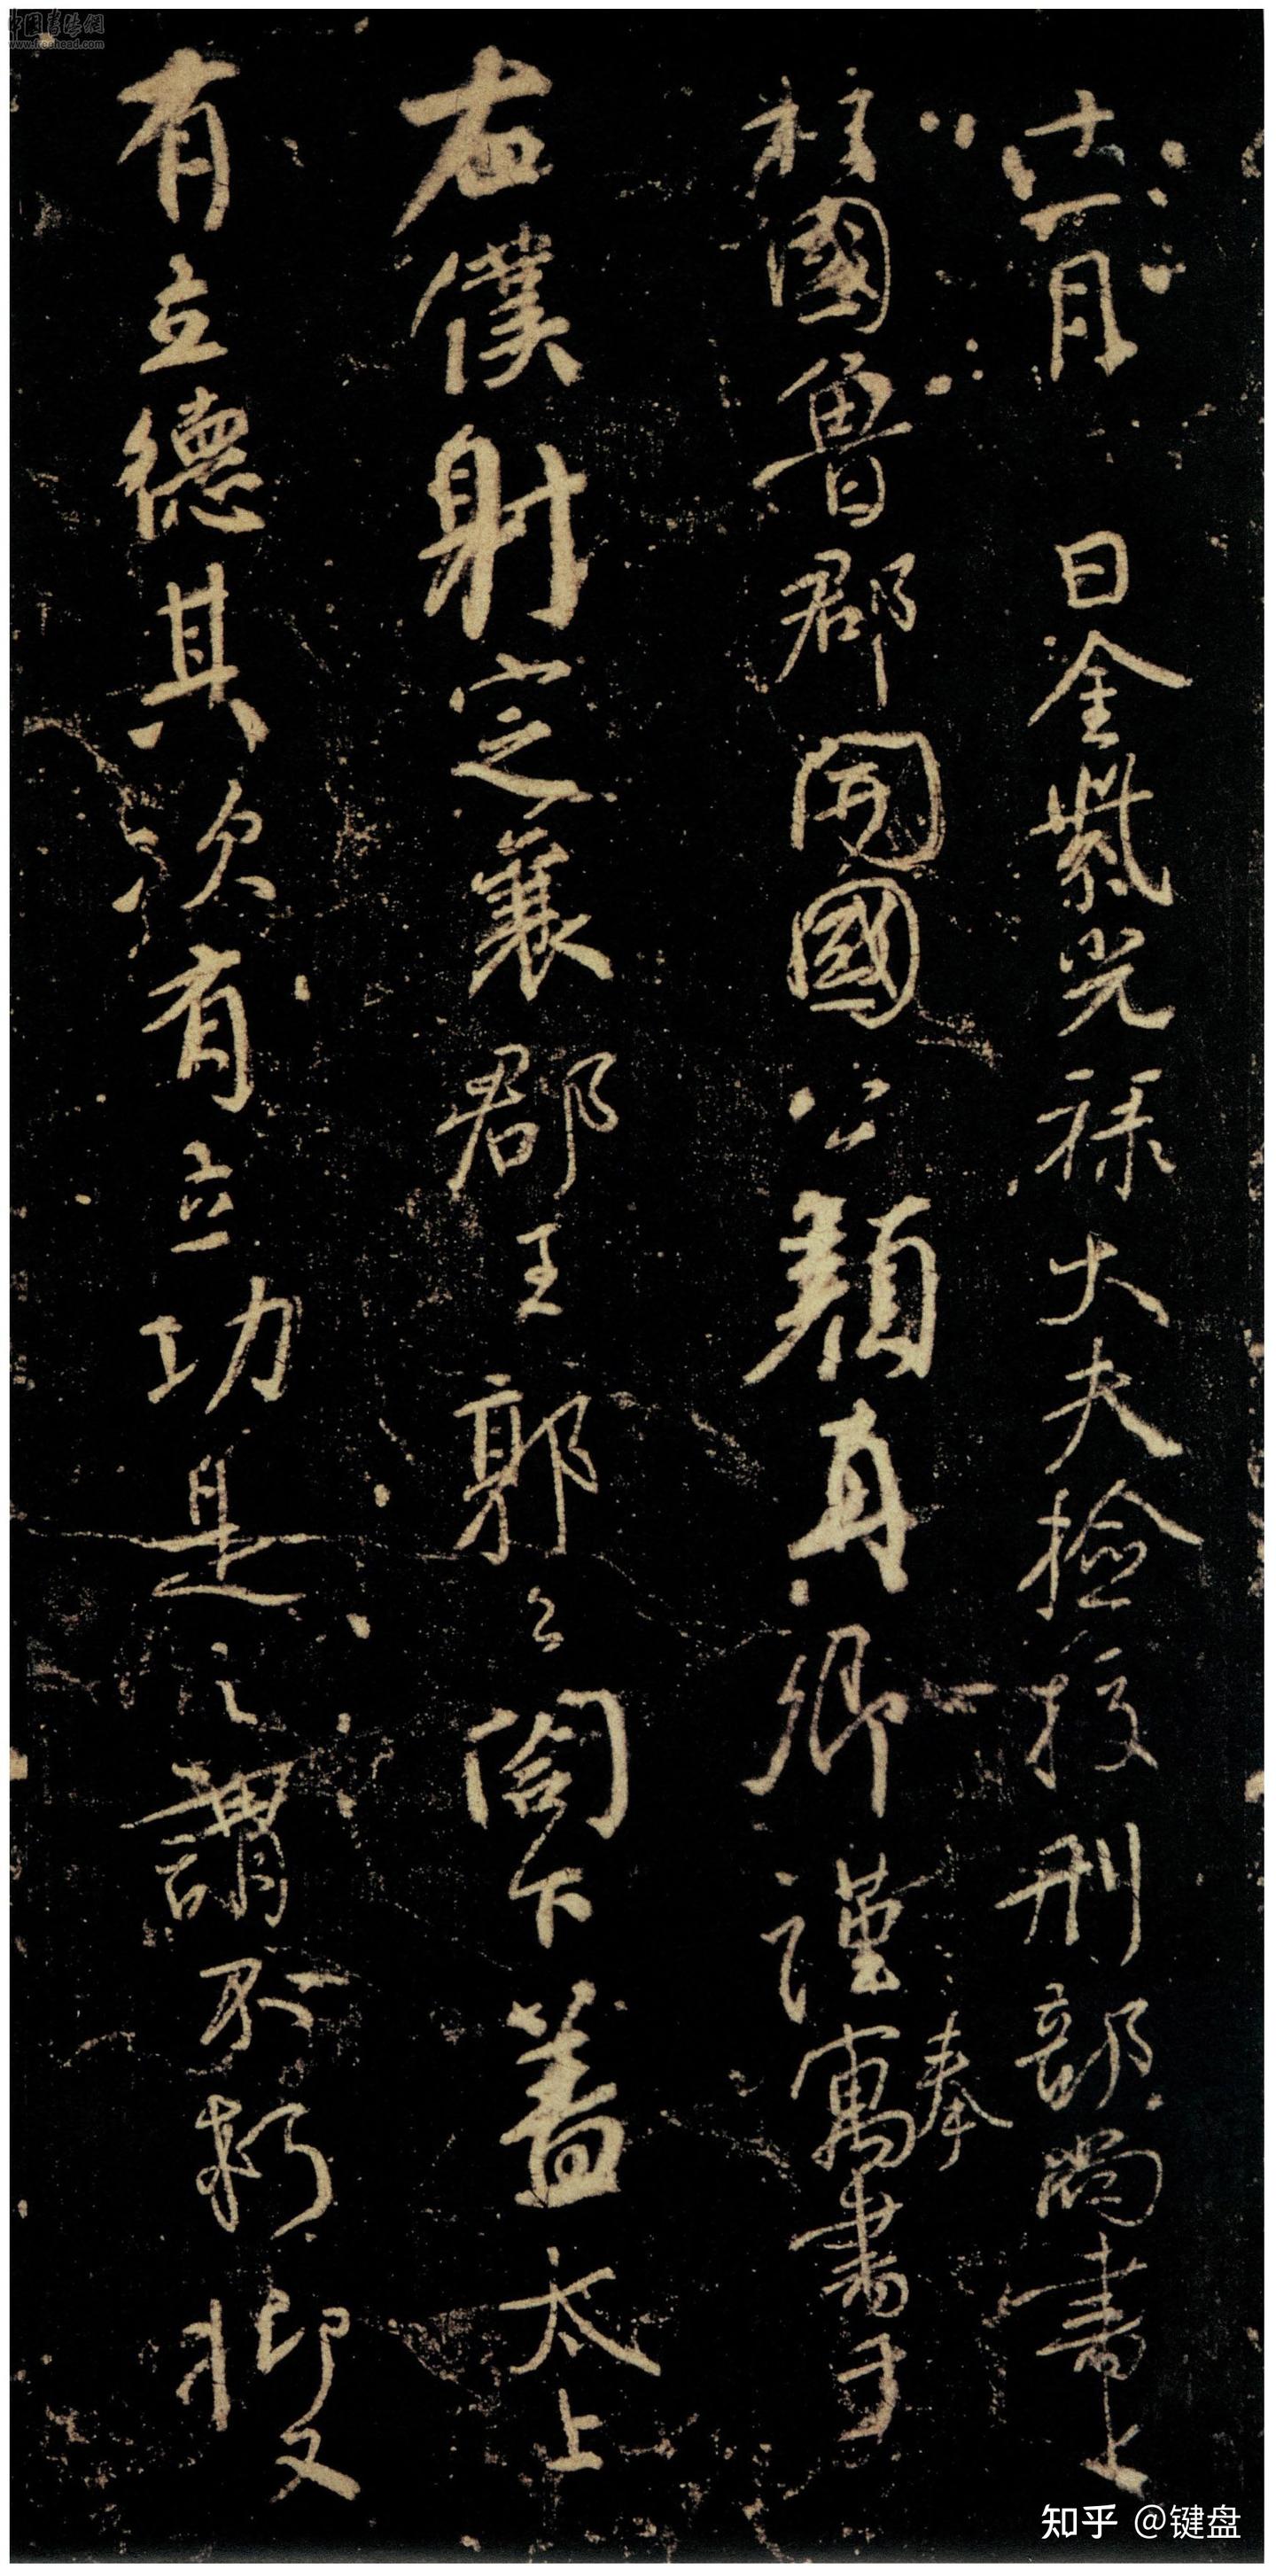 十一月日金紫光祿大夫檢校刑部尚書上
柱國魯郡開國公顏真卿謹奉寓書于
右僕射定襄郡王郭公閤下蓋太上
有立德其次有立功是之謂不朽抑又
中国书法網
www.freehead.com
知乎 @键盘